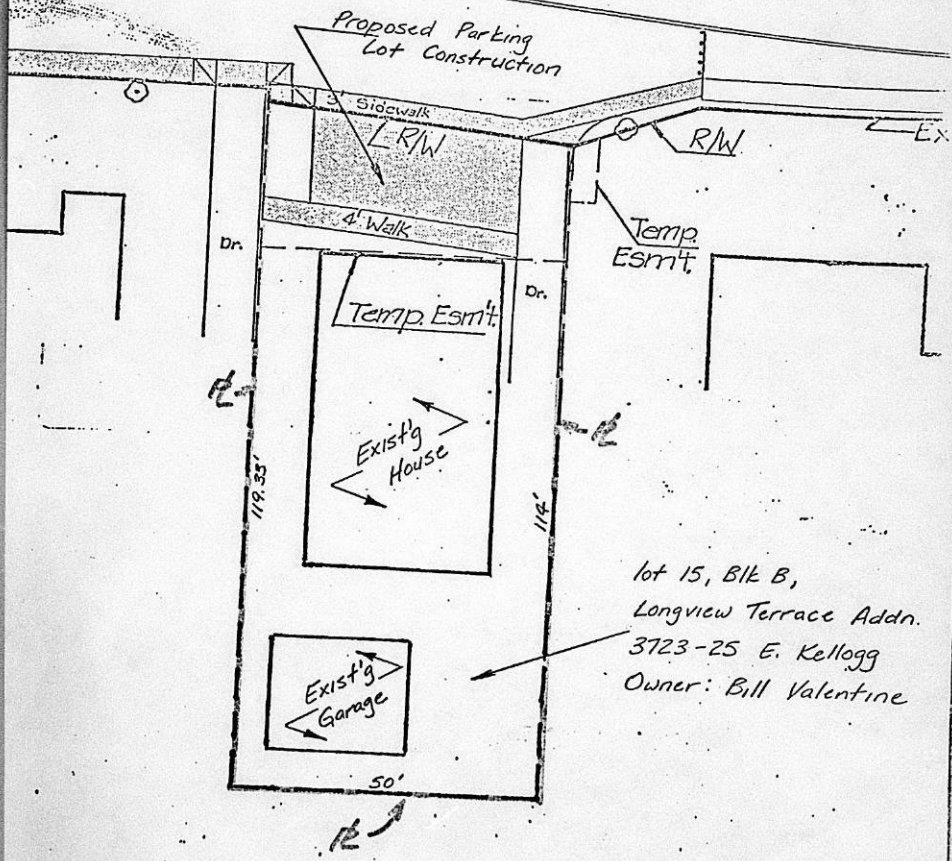 Proposed Parking
Lot Construction
3' Sidewalk
R/W
R/W
Ex
4' Walk
Temp.
Esm't.
Dr.
Dr.
Temp. Esm't.
PL
PL
Exist'g
House
119.33'
114'
lot 15, Blk B,
Longview Terrace Addn.
3723-25 E. Kellogg
Owner: Bill Valentine
Exist'g
Garage
50'
PL